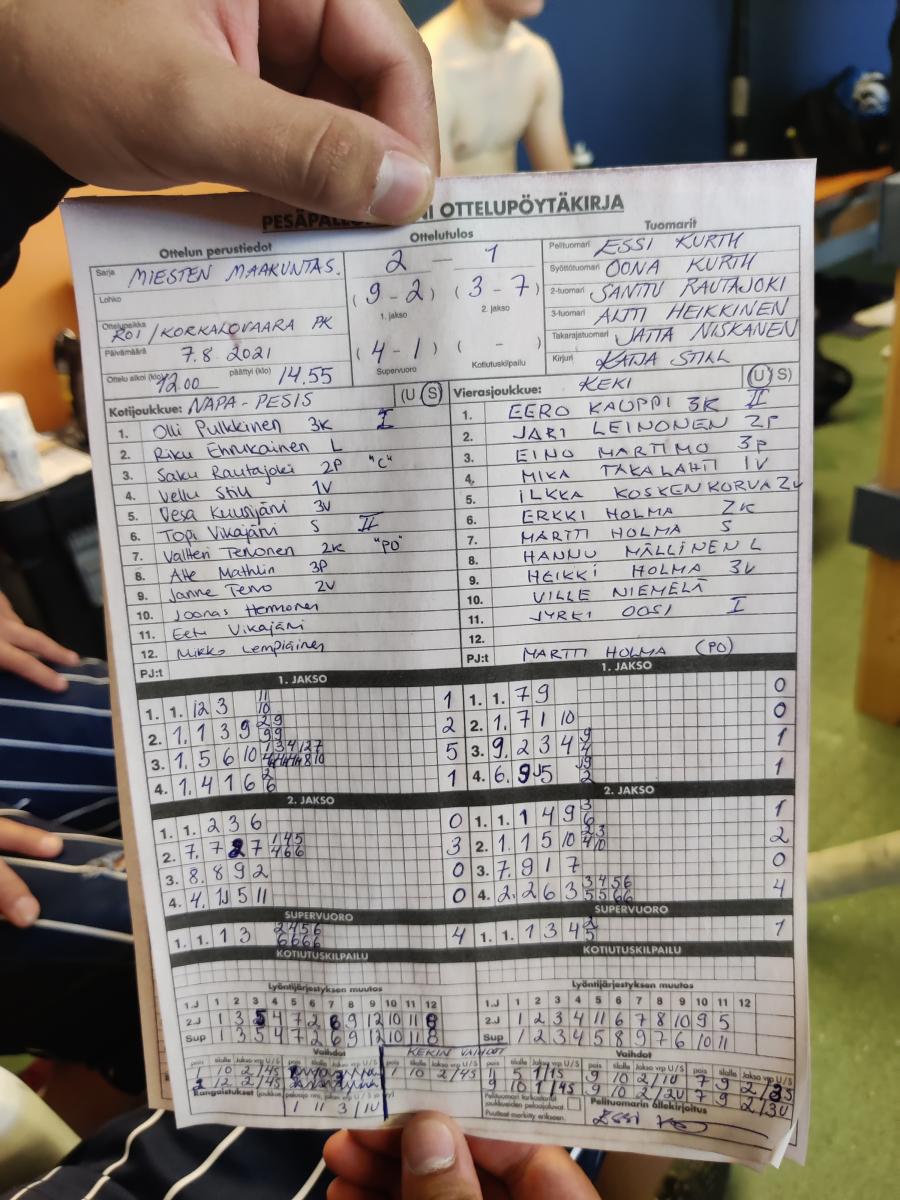 OTTELUPÖYTÄKIRJA
Ottelun perustiedot
Sarja MIESTEN MAAKUNTAS.
Lohko
Ottelupaikka ROI / KORKALOVAARA PK
Päivämäärä 7.8.2021
Ottelu alkoi (klo) 12.00 päättyi (klo) 14.55
Ottelutulos
2 — 1
(9 - 2) (3 - 7)
1. jakso 2. jakso
(4 - 1) ( - )
Supervuoro Kotiutuskilpailu
Tuomarit
Pelituomari ESSI KURTH
Syöttötuomari OONA KURTH
2-tuomari SANTTU RAUTAJOKI
3-tuomari ANTTI HEIKKINEN
Takarajatuomari JATTA NISKANEN
Kirjuri KATJA STILL
Kotijoukkue: NAPA-PESIS (U S)
1. Olli Pulkkinen 3K I
2. Riku Ennukainen L
3. Saku Rautajoki 2P "C"
4. Vellu Still 1V
5. Vesa Kuusijärvi 3V
6. Topi Vikajärvi S II
7. Valtteri Tervonen 2K "PO"
8. Atte Mathlin 3P
9. Janne Tervo 2V
10. Joonas Hermonen
11. Eetu Vikajärvi
12. Mikko Lempiäinen
PJ:t
Vierasjoukkue: KEKI (U S)
1. EERO KAUPPI 3K II
2. JARI LEINONEN 2P
3. EINO MARTIMO 3P
4. MIKA TAKALAHTI 1V
5. ILKKA KOSKENKORVA 2V
6. ERKKI HOLMA 2K
7. MARTTI HOLMA S
8. HANNU MÄLLINEN L
9. HEIKKI HOLMA 3V
10. VILLE NIEMELÄ
11. JYRKI OOSI I
12.
PJ:t MARTTI HOLMA (PO)
1. JAKSO
1. 1. 12 3 11 10 1
2. 1. 1 3 9 2 9 9 9 2
3. 1. 5 6 10 5
4. 1. 4 1 6 2 6 1
1. JAKSO
1. 1. 7 9 0
2. 1. 7 1 10 0
3. 9. 2 3 4 9 4 1
4. 6. 9 5 1
2. JAKSO
1. 1. 2 3 6 0
2. 7. 7 2 7 1 4 5 4 6 6 3
3. 8. 8 9 2 0
4. 4. 5 11 0
2. JAKSO
1. 1. 1 4 9 3 6 1
2. 1. 1 5 10 2 3 4 10 2
3. 7. 9 1 7 0
4. 2. 2 6 3 3 4 5 6 5 5 6 6 4
SUPERVUORO
1. 1. 1 3 2 4 5 6 6 6 6 6 4
SUPERVUORO
1. 1. 1 3 4 2 5 1
KOTIUTUSKILPAILU
KOTIUTUSKILPAILU
Lyöntijärjestyksen muutos
1.J 1 2 3 4 5 6 7 8 9 10 11 12
2.J 1 3 5 4 7 2 6 9 12 10 11 8
Sup 1 3 5 4 7 2 6 9 12 10 11 8
Lyöntijärjestyksen muutos
1.J 1 2 3 4 5 6 7 8 9 10 11 12
2.J 1 2 3 4 11 6 7 8 10 9 5
Sup 1 2 3 4 5 8 9 7 6 10 11
Vaihdot
pois sisälle Jakso vrp U/S
1 10 2/4S
2 12 2/4S
Rangaistukset
1 11 3/1U
KEKIN VAIHDOT
1 10 2/4S
Vaihdot
pois sisälle Jakso vrp U/S
5 1/1S
9 10 1/4S
9 10 2/1U
9 10 2/2U
7 9 2/3S
7 9 2/3U
Pelituomari tarkastanut joukkueiden peliasujuvat
Puutteet merkitty erikseen.
Pelituomarin allekirjoitus
Essi